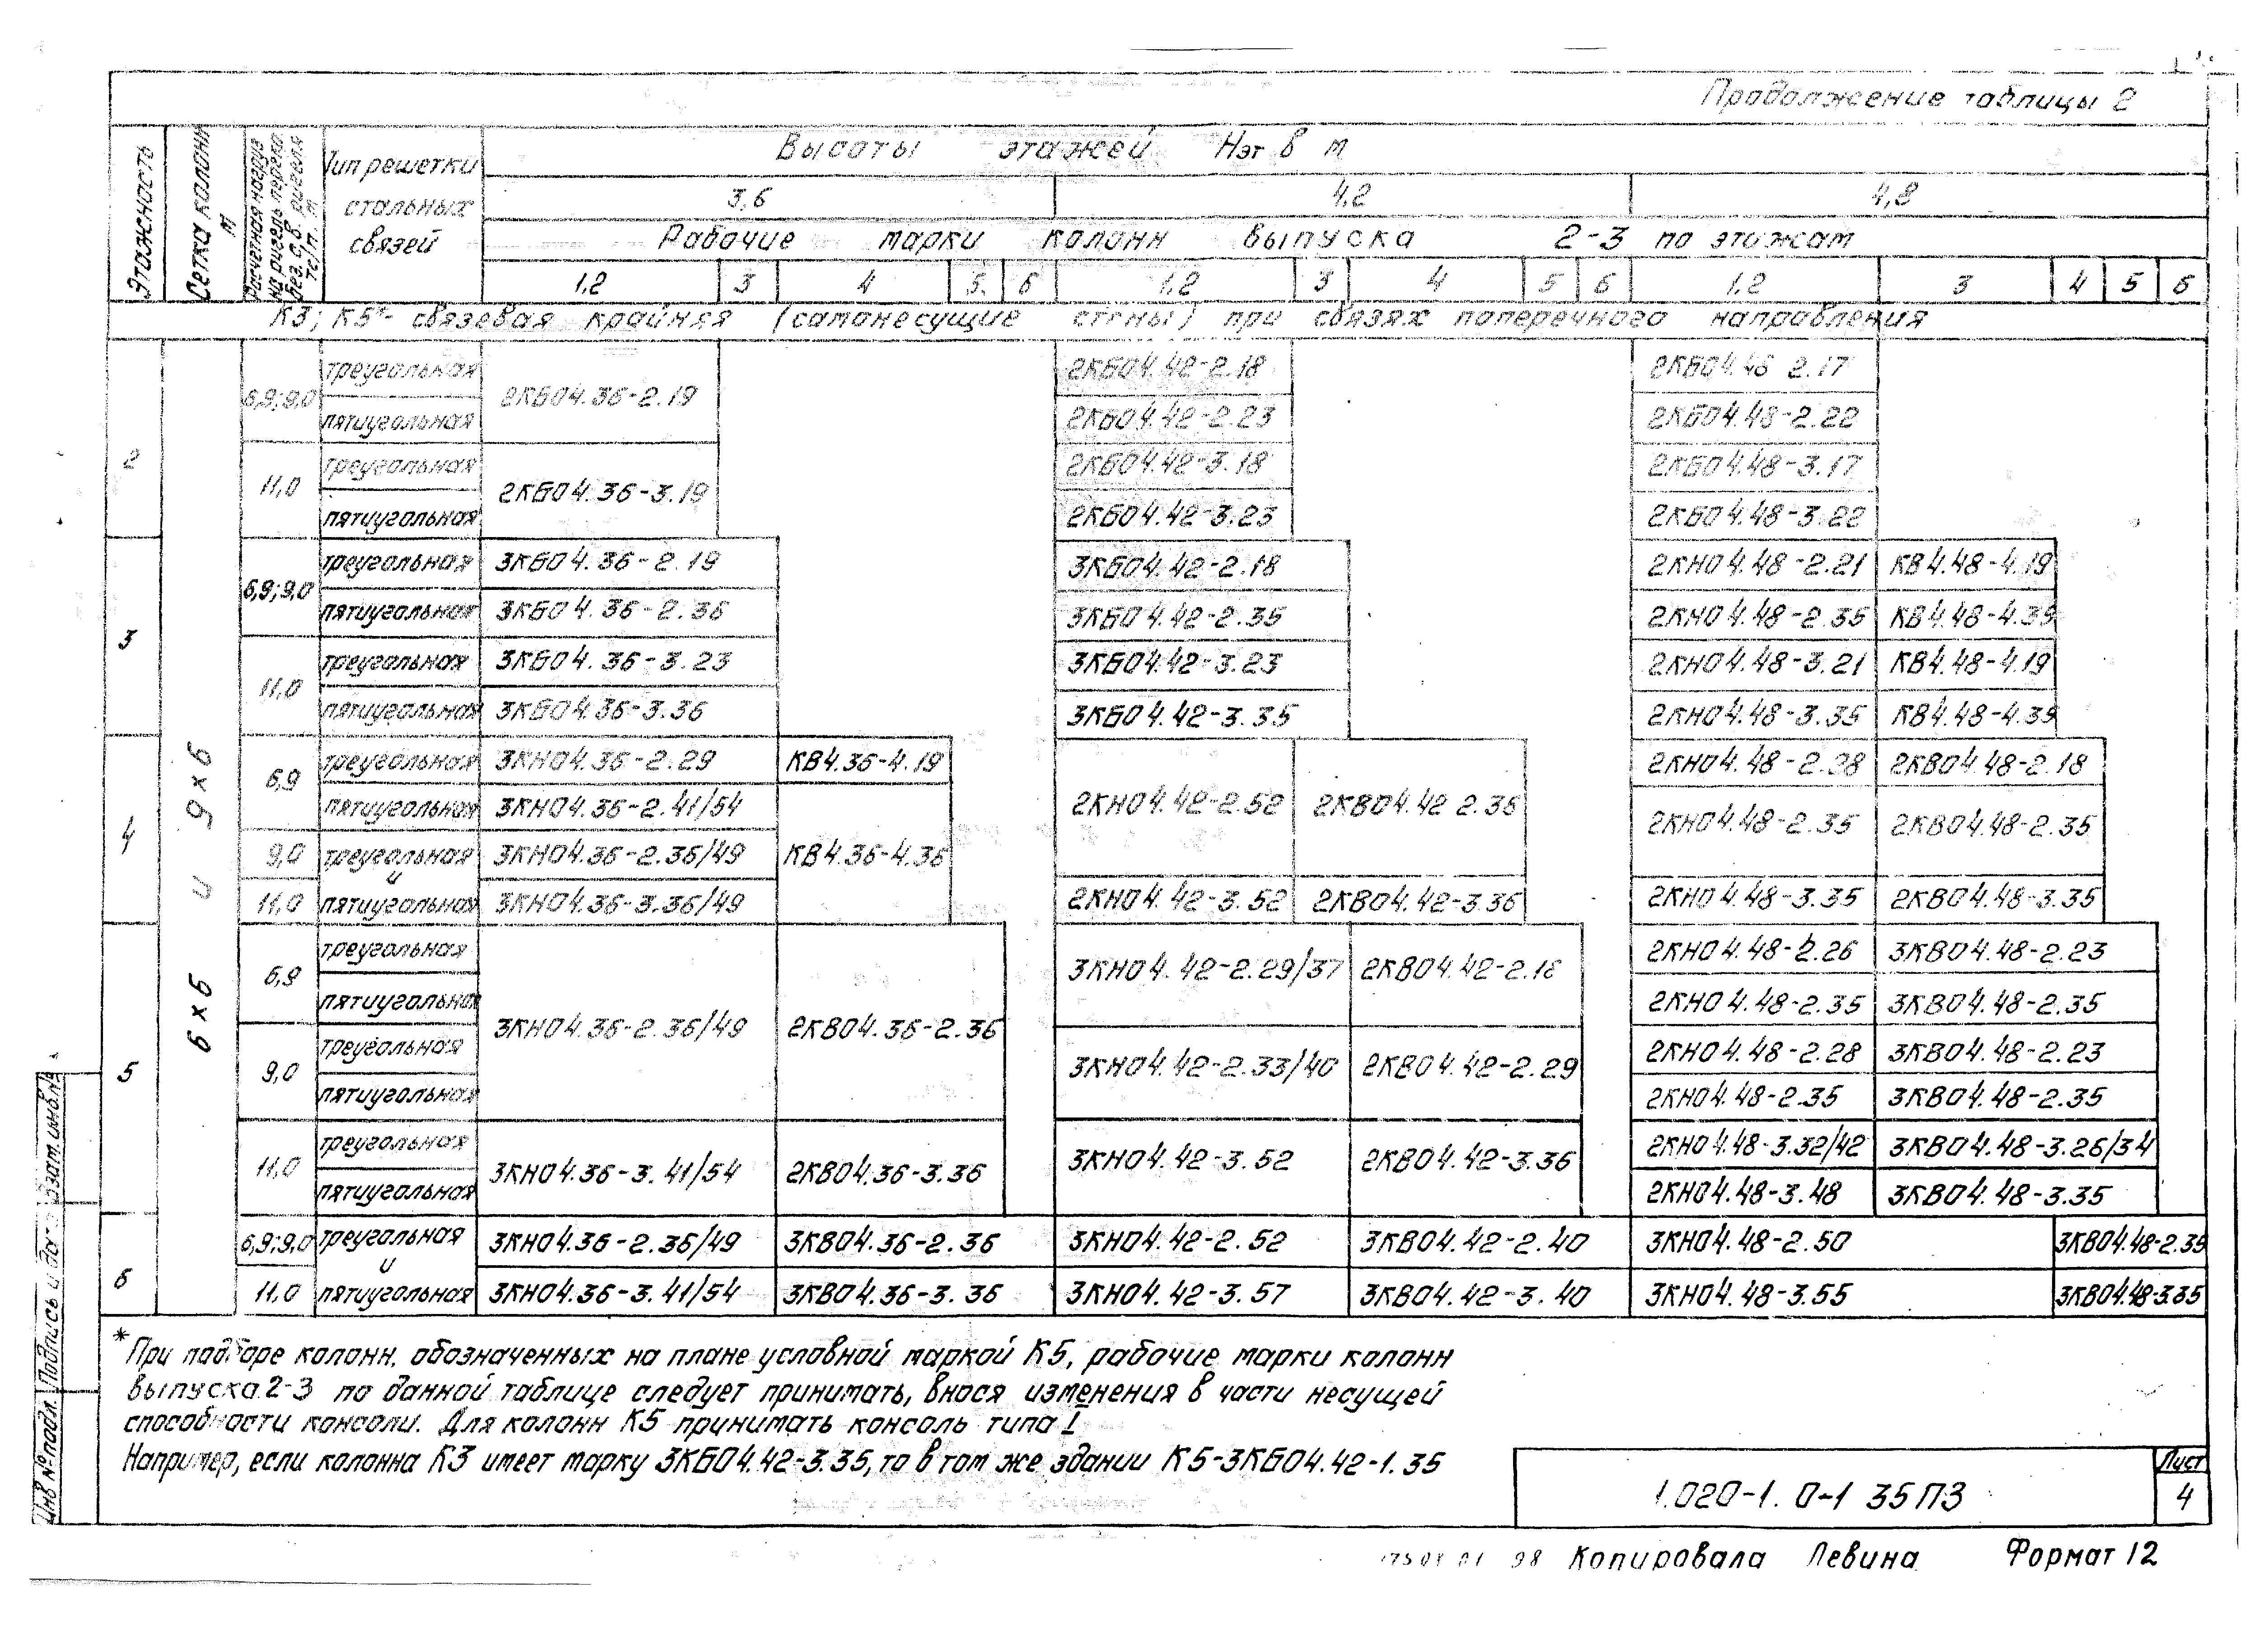 Продолжение таблицы 2
Этажность
Сетка колонн м
Расчетная нагруз на ригель перекр. без с.в. ригеля тс/п.м
Тип решетки
стальных
связей
Высоты этажей Нэт в м
3,6 4,2 4,8
Рабочие марки колонн выпуска 2-3 по этажам
1,2 3 4 5. 6 1,2 3 4 5 6 1,2 3 4 5 6
К3; К5*- связевая крайняя (самонесущие стены) при связях поперечного направления
6х6 и 9х6
2
6,9;9,0 треугольная 2КБО4.36-2.19 2КБО4.42-2.18 2КБО4.48 2.17
пятиугольная 2КБО4.42-2.23 2КБО4.48-2.22
11,0 треугольная 2КБО4.36-3.19 2КБО4.42-3.18 2КБО4.48-3.17
пятиугольная 2КБО4.42-3.23 2КБО4.48-3.22
3
6,9;9,0 треугольная 3КБО4.36-2.19 3КБО4.42-2.18 2КНО4.48-2.21 КВ4.48-4.19
пятиугольная 3КБО4.36-2.36 3КБО4.42-2.35 2КНО4.48-2.35 КВ4.48-4.35
11,0 треугольная 3КБО4.36-3.23 3КБО4.42-3.23 2КНО4.48-3.21 КВ4.48-4.19
пятиугольная 3КБО4.36-3.36 3КБО4.42-3.35 2КНО4.48-3.35 КВ4.48-4.35
4
6,9 треугольная 3КНО4.36-2.29 КВ4.36-4.19 2КНО4.42-2.52 2КВО4.42 2.36 2КНО4.48-2.28 2КВО4.48-2.18
пятиугольная 3КНО4.36-2.41/54 КВ4.36-4.36 2КНО4.48-2.35 2КВО4.48-2.35
9,0 треугольная 3КНО4.36-2.36/49
и
11,0 пятиугольная 3КНО4.36-3.36/49 2КНО4.42-3.52 2КВО4.42-3.36 2КНО4.48-3.35 2КВО4.48-3.35
5
6,9 треугольная 3КНО4.36-2.36/49 2КВО4.36-2.36 3КНО4.42-2.29/37 2КВО4.42-2.18 2КНО4.48-2.26 3КВО4.48-2.23
пятиугольная 2КНО4.48-2.35 3КВО4.48-2.35
9,0 треугольная 3КНО4.42-2.33/40 2КВО4.42-2.29 2КНО4.48-2.28 3КВО4.48-2.23
пятиугольная 2КНО4.48-2.35 3КВО4.48-2.35
11,0 треугольная 3КНО4.36-3.41/54 2КВО4.36-3.36 3КНО4.42-3.52 2КВО4.42-3.36 2КНО4.48-3.32/42 3КВО4.48-3.26/34
пятиугольная 2КНО4.48-3.48 3КВО4.48-3.35
6
6,9;9,0 треугольная 3КНО4.36-2.36/49 3КВО4.36-2.36 3КНО4.42-2.52 3КВО4.42-2.40 3КНО4.48-2.50 3КВО4.48-2.35
и
11,0 пятиугольная 3КНО4.36-3.41/54 3КВО4.36-3.36 3КНО4.42-3.57 3КВО4.42-3.40 3КНО4.48-3.55 3КВО4.48-3.35
*При подборе колонн, обозначенных на плане условной маркой К5, рабочие марки колонн
выпуска 2-3 по данной таблице следует принимать, внося изменения в части несущей
способности консоли. Для колонн К5 принимать консоль типа I
Например, если колонна К3 имеет марку 3КБО4.42-3.35, то в том же здании К5-3КБО4.42-1.35
1.020-1. 0-1 35ПЗ
Лист
4
Инв № подл. Подпись и дата Взам. инв. №
98 Копировала Левина Формат 12